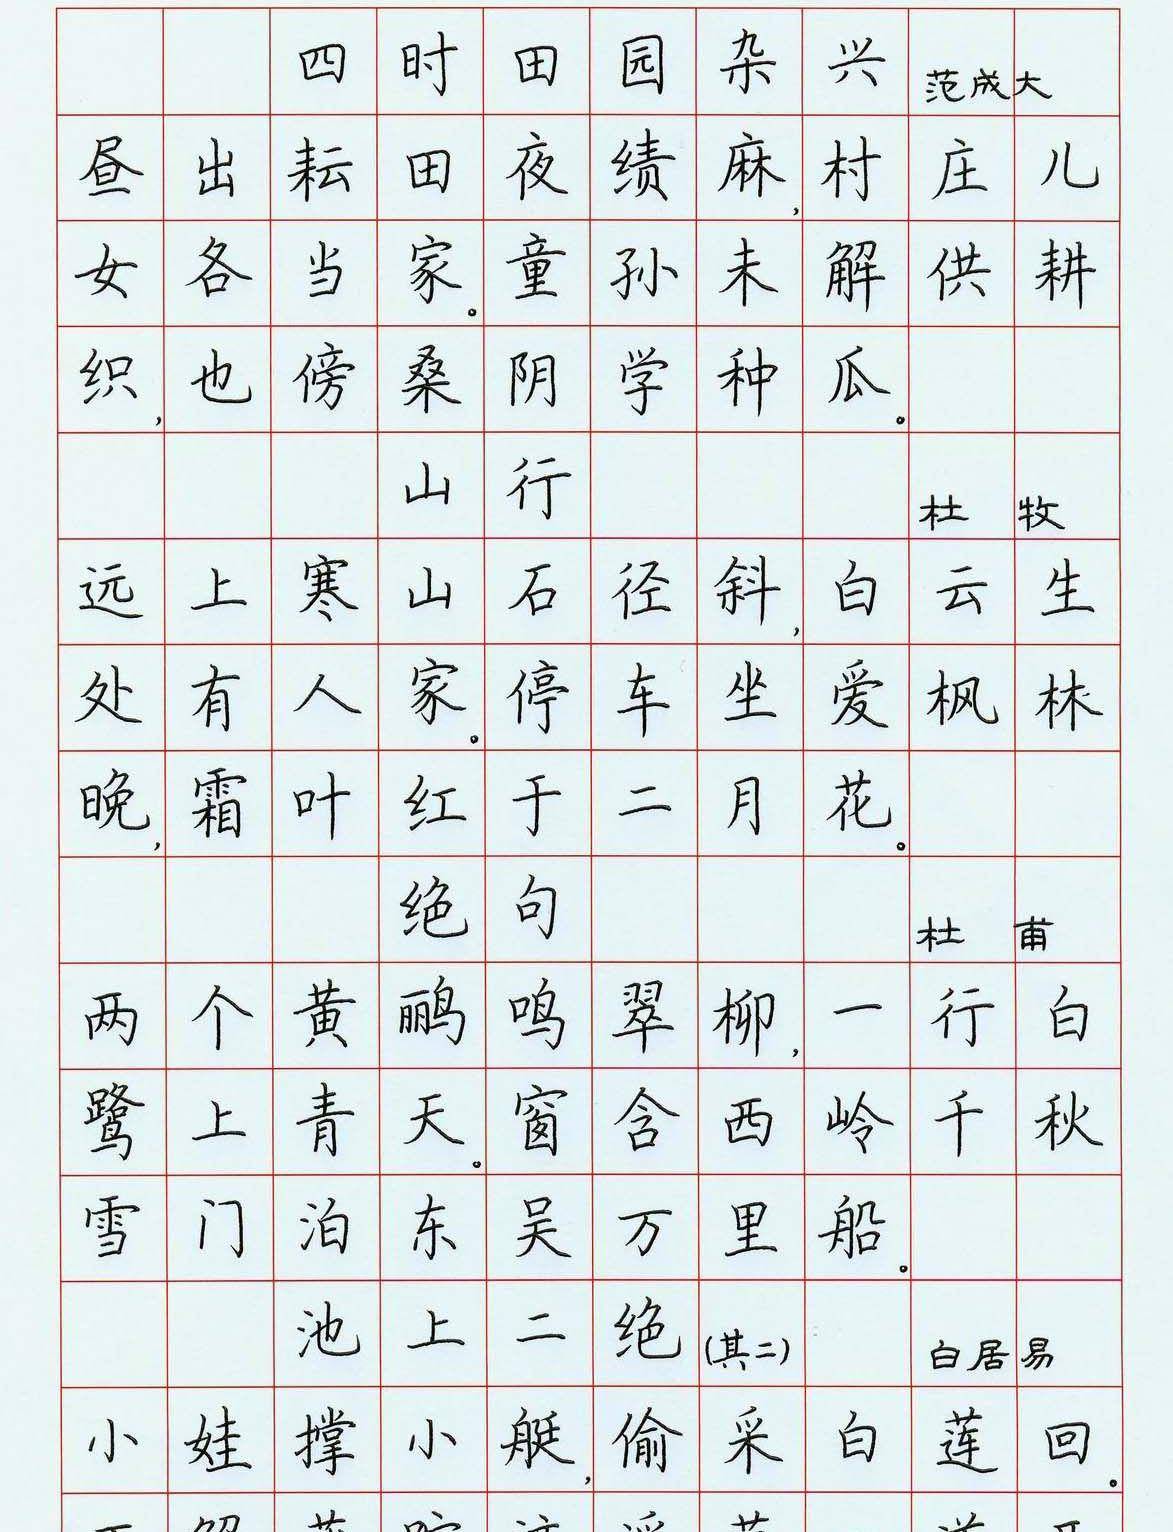 四时田园杂兴 范成大
昼出耘田夜绩麻,村庄儿
女各当家。童孙未解供耕
织,也傍桑阴学种瓜。
山行 杜牧
远上寒山石径斜,白云生
处有人家。停车坐爱枫林
晚,霜叶红于二月花。
绝句 杜甫
两个黄鹂鸣翠柳,一行白
鹭上青天。窗含西岭千秋
雪门泊东吴万里船。
池上二绝(其二) 白居易
小娃撑小艇,偷采白莲回。